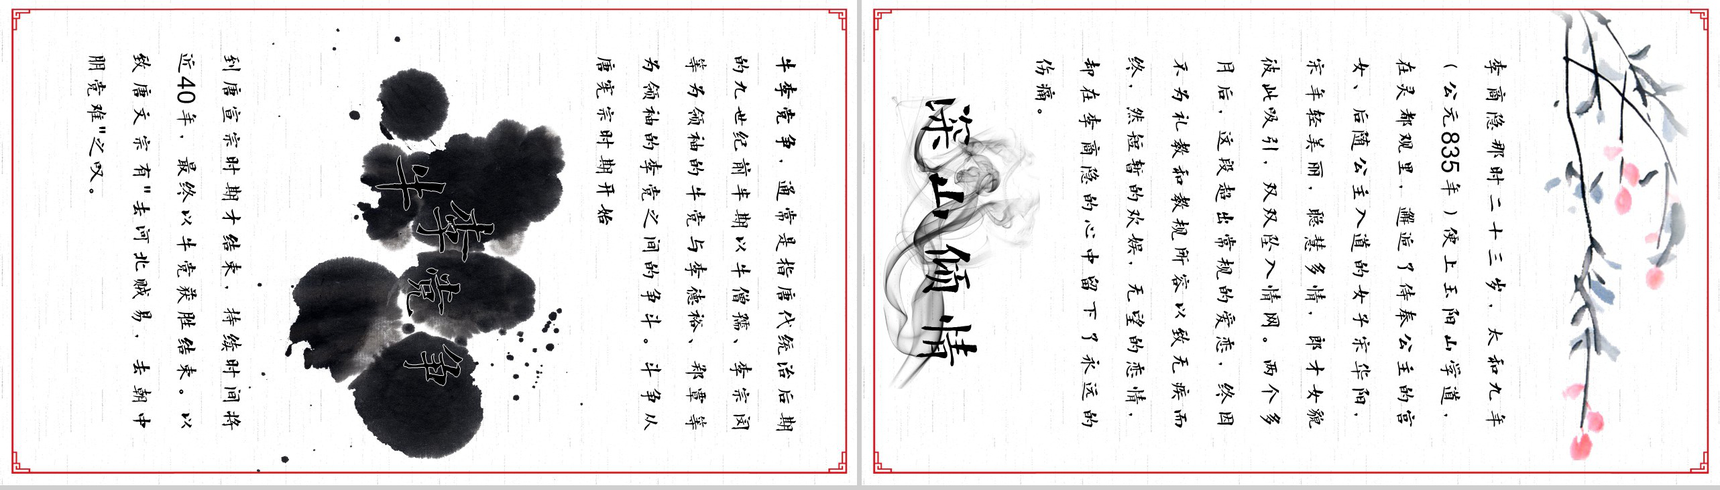 牛李党争，通常是指唐代统治后期
的九世纪前半期以牛僧孺、李宗闵
等为领袖的牛党与李德裕、郑覃等
为领袖的李党之间的争斗。斗争从
唐宪宗时期开始
牛李党争
到唐宣宗时期才结束，持续时间将
近40年，最终以牛党获胜结束。以
致唐文宗有"去河北贼易，去朝中
朋党难"之叹。
李商隐那时二十三岁，太和九年
（公元835年）便上玉阳山学道，
在灵都观里，邂逅了侍奉公主的宫
女、后随公主入道的女子宋华阳，
宋年轻美丽，聪慧多情，郎才女貌
彼此吸引，双双坠入情网。两个多
月后，这段超出常规的爱恋，终因
不为礼教和教规所容以致无疾而
终，然短暂的欢娱，无望的恋情，
却在李商隐的心中留下了永远的
伤痛。
深山倾情